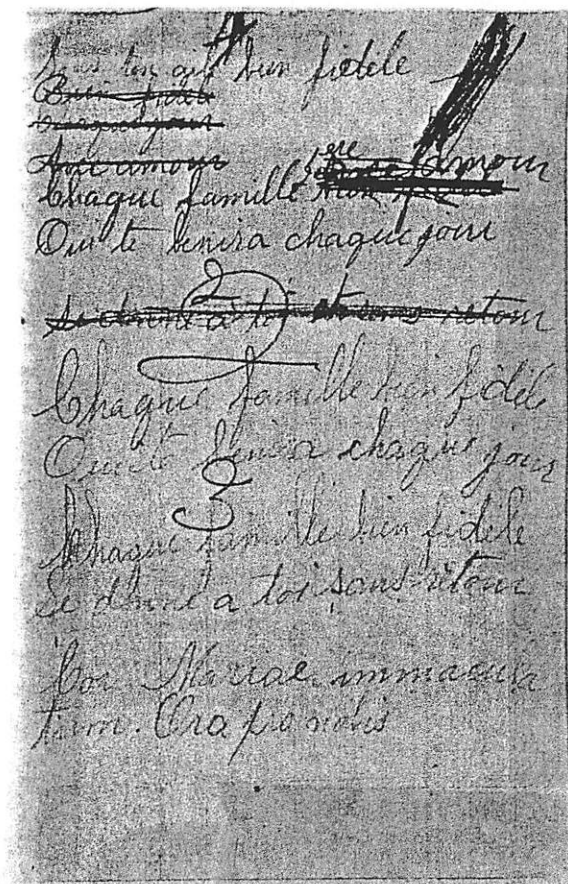 Sous ton aile bien fidèle
Bien fidèle
chaque jour
Ave amour
Chaque famille amour
Qui te bénira chaque jour
2
Se donne à toi sans retour
Chaque famille bien fidèle
Qui te bénira chaque jour
3
Chaque famille bien fidèle
Se donne a toi sans retour
Cor Mariae immacula
tum. Ora pro nobis